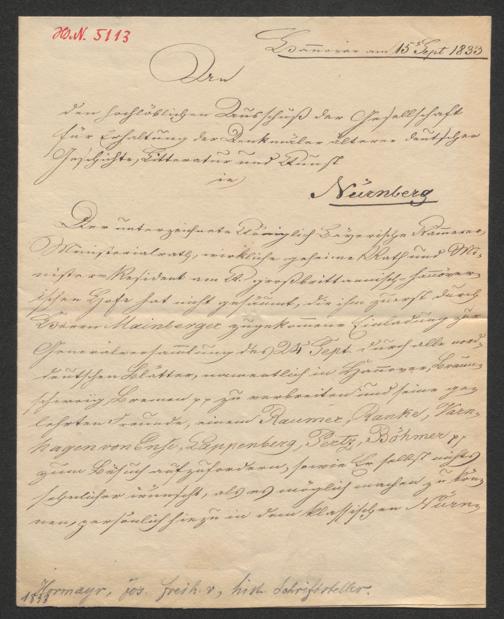 W.N. 5113
Hannover am 15 Sept 1833
An
den hochlöblichen Ausschuß der Gesellschaft
für Erhaltung der Denkmäler älterer deutscher
Geschichte, Litteratur und Kunst
in
Nürnberg
Der unterzeichnete Königlich Bayerische Kämmerer,
Ministerialrath, wirkliche geheime Rath und Mi-
nister Resident am K. großbrittanisch-hannover-
ischen Hofe hat nicht gesäumt, die ihm zuerst durch
Herrn Mainberger zugekommene Einladung zur
Generalversammlung des 24 Sept. durch alle nord-
deutschen Blätter, namentlich in Hannover, Braun-
schweig, Bremen pp zu verbreiten und seine ge-
lehrten Freunde, einem Raumer, Ranke, Varn-
hagen von Ense, Lappenberg, Pertz, Böhmer pp
zum Besuch aufzufordern, sowie Er selbst nichts
sehnlicher wünscht, als es möglich machen zu kön-
nen, persönlich hiezu in dem klassischen Nürn-
Hormayr, Jos. Freih. v., hist. Schriftsteller.
1833